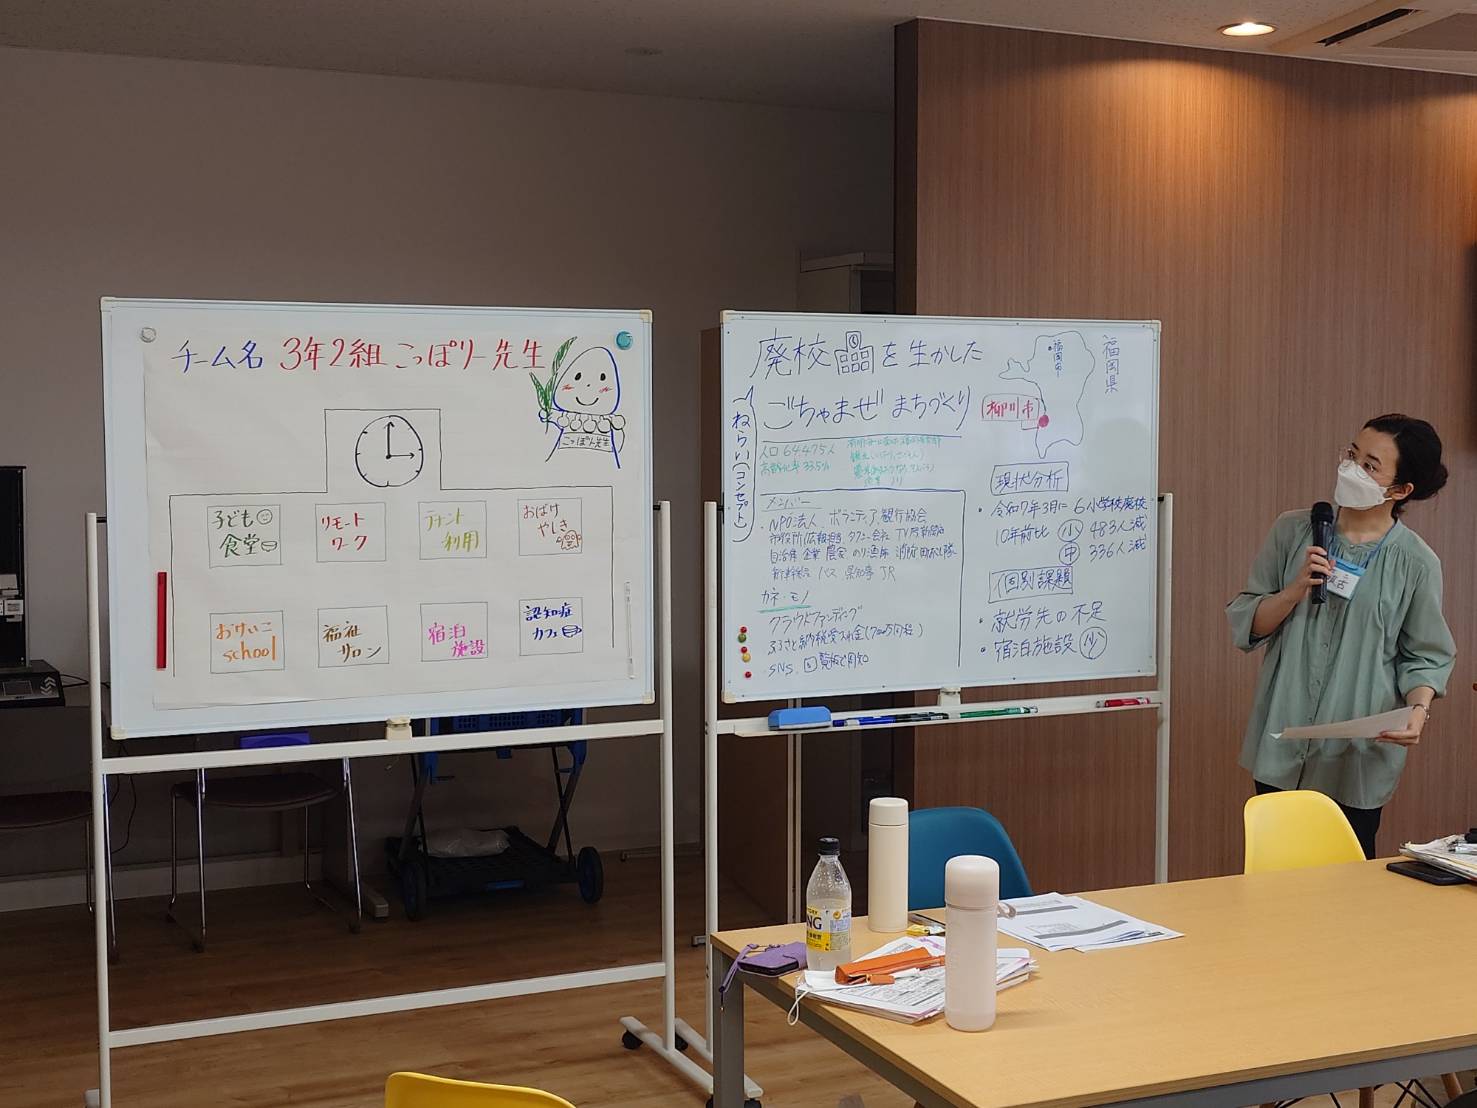 チーム名 3年2組こっぽりー先生
こっぽりー先生
子ども
食堂
リモート
ワーク
テナント
利用
おばけ
やしき
おけいこ
school
福祉
サロン
宿泊
施設
認知症
カフェ
廃校を生かした
ごちゃまぜまちづくり
ねらい(コンセプト)
福岡県
福岡市
柳川市
人口 64,475人
高齢化率 33.5%
メンバー
・NPO法人、ボランティア、観光協会
市役所(広報担当、タクシー会社、TV局、新聞社
自治体 企業 農家 のり漁師 消防団
バス 県知事 JR
カネ・モノ
クラウドファンディング
ふるさと納税受入れ金(7000万円程)
SNS、回覧板で周知
現状分析
・令和7年3月に6小学校廃校
10年前比 小 483人減
中 336人減
個別課題
・就労先の不足
・宿泊施設 少